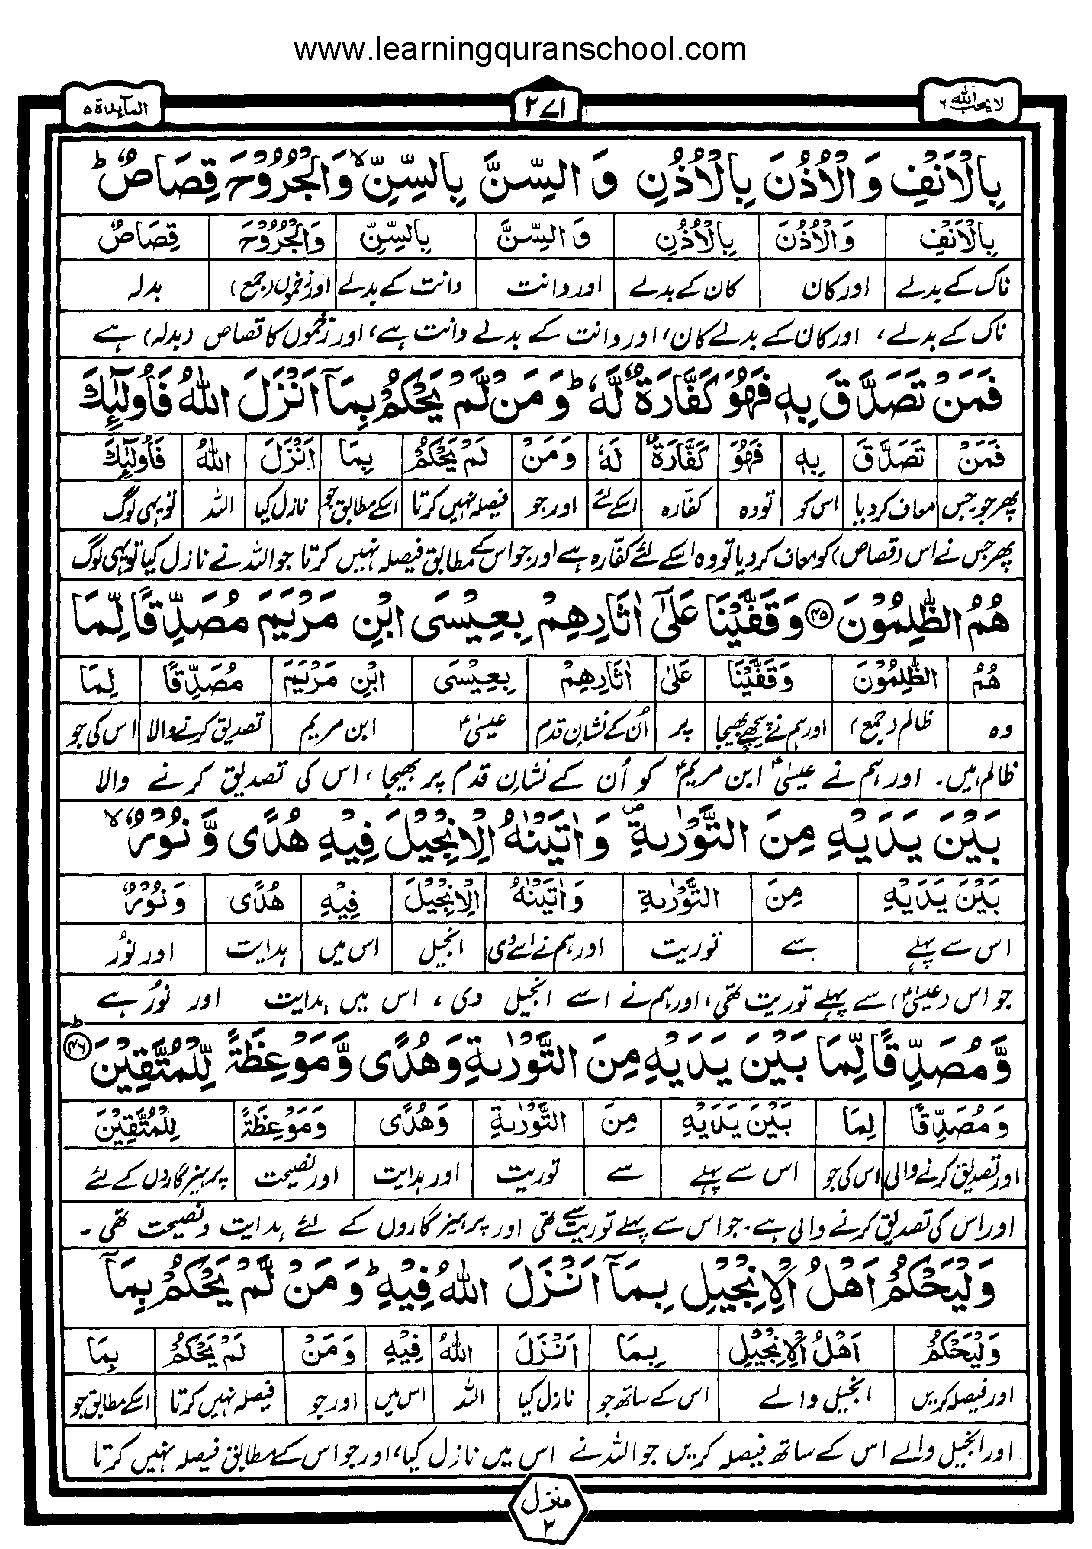 www.learningquranschool.com
لا يحب الله ٦
٢٧١
المآيدة ٥
بِالْاَنْفِ وَالْاُذُنَ بِالْاُذُنِ وَالسِّنَّ بِالسِّنِّ ۙ وَالْجُرُوْحَ قِصَاصٌ ؕ
بِالْاَنْفِ وَالْاُذُنَ بِالْاُذُنِ وَالسِّنَّ بِالسِّنِّ وَالْجُرُوْحَ قِصَاصٌ
ناک کے بدلے اور کان کان کے بدلے اور دانت دانت کے بدلے اور زخموں (جمع) بدلہ
ناک کے بدلے، اور کان کے بدلے کان، اور دانت کے بدلے دانت ہے، اور زخموں کا قصاص (بدلہ) ہے
فَمَنْ تَصَدَّقَ بِهٖ فَهُوَ كَفَّارَةٌ لَّهٗ ؕ وَمَنْ لَّمْ يَحْكُمْ بِمَآ اَنْزَلَ اللّٰهُ فَاُولٰٓئِكَ
فَمَنْ تَصَدَّقَ بِهٖ فَهُوَ كَفَّارَةٌ لَهٗ وَمَنْ لَمْ يَحْكُمْ بِمَا اَنْزَلَ اللّٰهُ فَاُولٰٓئِكَ
پھر جو جس معاف کر دیا اس کو تو وہ کفارہ اسکے لئے اور جو فیصلہ نہیں کرتا اسکے مطابق جو نازل کیا اللہ تو یہی لوگ
پھر جس نے اس (قصاص) کو معاف کر دیا تو وہ اسکے لئے کفارہ ہے اور جو اس کے مطابق فیصلہ نہیں کرتا جو اللہ نے نازل کیا تو یہی لوگ
هُمُ الظّٰلِمُوْنَ ۝٤٥ وَقَفَّيْنَا عَلٰٓى اٰثَارِهِمْ بِعِيْسَى ابْنِ مَرْيَمَ مُصَدِّقًا لِّمَا
هُمُ الظّٰلِمُوْنَ وَقَفَّيْنَا عَلٰى اٰثَارِهِمْ بِعِيْسَى ابْنِ مَرْيَمَ مُصَدِّقًا لِمَا
وہ ظالم (جمع) اور ہم نے پیچھے بھیجا پر اُن کے نشانِ قدم عیسیٰؑ ابن مریم تصدیق کرنے والا اس کی جو
ظالم ہیں۔ اور ہم نے عیسیٰؑ ابن مریمؑ کو اُن کے نشانِ قدم پر بھیجا، اس کی تصدیق کرنے والا
بَيْنَ يَدَيْهِ مِنَ التَّوْرٰىةِ ۖ وَاٰتَيْنٰهُ الْاِنْجِيْلَ فِيْهِ هُدًى وَّنُوْرٌ ۙ
بَيْنَ يَدَيْهِ مِنَ التَّوْرٰىةِ وَاٰتَيْنٰهُ الْاِنْجِيْلَ فِيْهِ هُدًى وَنُوْرٌ
اس سے پہلے سے توریت اور ہم نے اسے دی انجیل اس میں ہدایت اور نُور
جو اس (عیسیٰؑ) سے پہلے توریت تھی، اور ہم نے اسے انجیل دی، اس میں ہدایت اور نُور ہے
وَّمُصَدِّقًا لِّمَا بَيْنَ يَدَيْهِ مِنَ التَّوْرٰىةِ وَهُدًى وَّمَوْعِظَةً لِّلْمُتَّقِيْنَ ؕ ۝٤٦
وَمُصَدِّقًا لِمَا بَيْنَ يَدَيْهِ مِنَ التَّوْرٰىةِ وَهُدًى وَمَوْعِظَةً لِلْمُتَّقِيْنَ
اور تصدیق کرنے والی اس کی جو اس سے پہلے سے توریت اور ہدایت اور نصیحت پرہیزگاروں کے لئے
اور اس کی تصدیق کرنے والی ہے۔ جو اس سے پہلے توریت سے تھی اور پرہیزگاروں کے لئے ہدایت و نصیحت تھی۔
وَلْيَحْكُمْ اَهْلُ الْاِنْجِيْلِ بِمَآ اَنْزَلَ اللّٰهُ فِيْهِ ؕ وَمَنْ لَّمْ يَحْكُمْ بِمَآ
وَلْيَحْكُمْ اَهْلُ الْاِنْجِيْلِ بِمَا اَنْزَلَ اللّٰهُ فِيْهِ وَمَنْ لَمْ يَحْكُمْ بِمَا
اور فیصلہ کریں انجیل والے اس کے ساتھ جو نازل کیا اللہ اس میں اور جو فیصلہ نہیں کرتا اسکے مطابق جو
اور انجیل والے اس کے ساتھ فیصلہ کریں جو اللہ نے اس میں نازل کیا، اور جو اس کے مطابق فیصلہ نہیں کرتا
منزل
٢